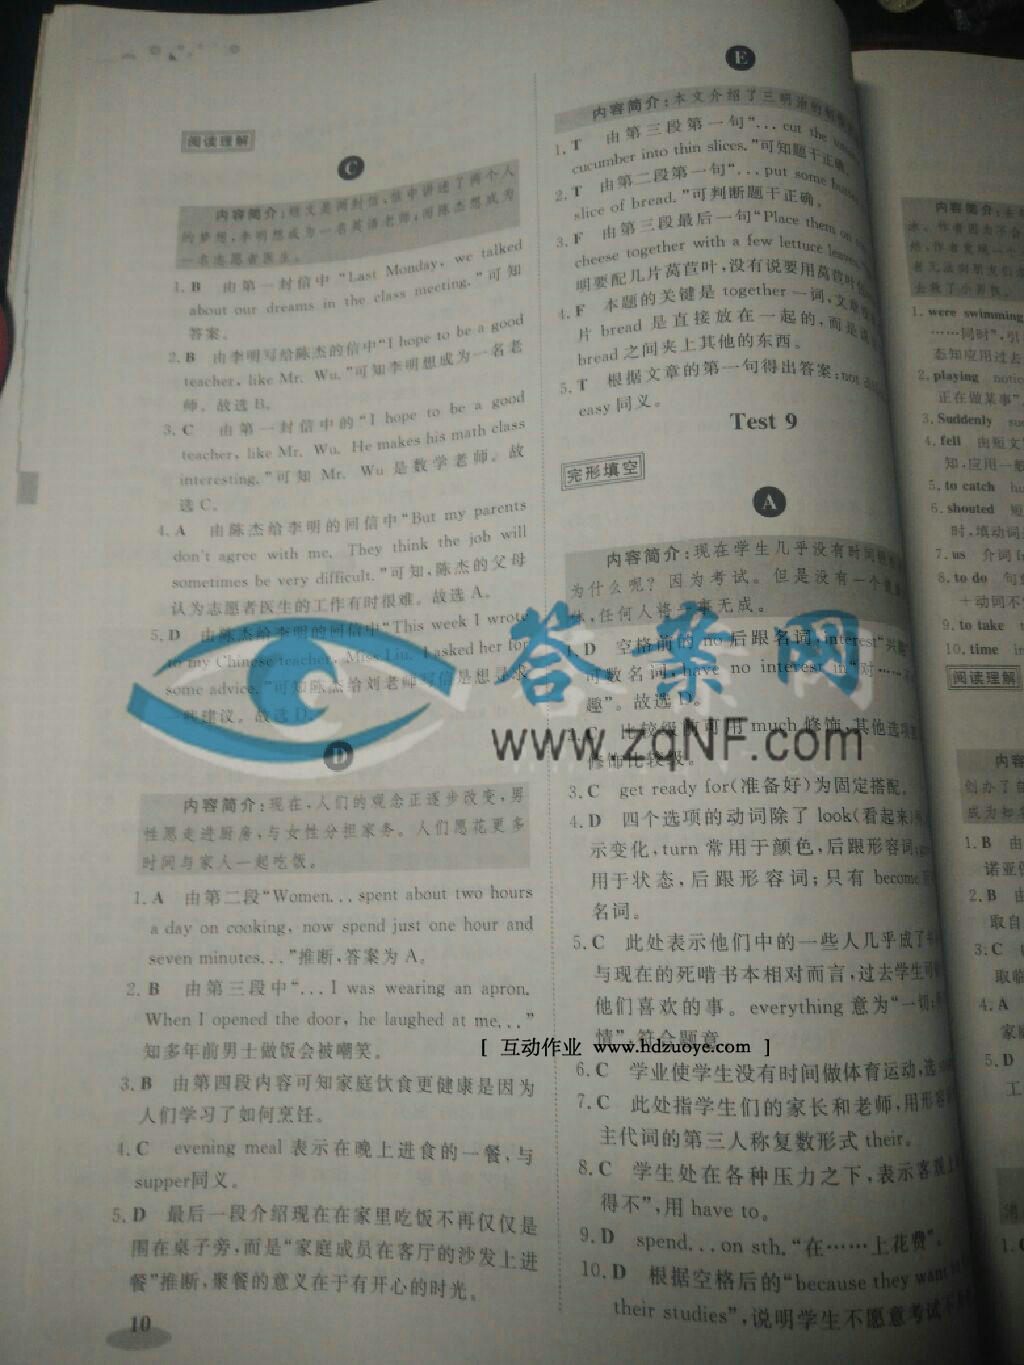 阅读理解
C
内容简介:短文是两封信,信中讲述了两个人
的梦想,李明想成为一名英语老师;而陈杰想成为
一名志愿者医生。
1. B 由第一封信中“Last Monday, we talked
about our dreams in the class meeting.”可知
答案。
2. B 由李明写给陈杰的信中“I hope to be a good
teacher, like Mr. Wu.”可知李明想成为一名老
师。故选B。
3. C 由第一封信中的“I hope to be a good
teacher, like Mr. Wu. He makes his math class
interesting.”可知 Mr. Wu 是数学老师。故
选C。
4. A 由陈杰给李明的回信中“But my parents
don't agree with me. They think the job will
sometimes be very difficult.”可知,陈杰的父母
认为志愿者医生的工作有时很难。故选A。
5. D 由陈杰给李明的回信中“This week I wrote
to my Chinese teacher, Miss Liu. I asked her for
some advice.”可知陈杰给刘老师写信是想寻求
一些建议。故选D。
D
内容简介:现在,人们的观念正逐步改变,男
性愿走进厨房,与女性分担家务。人们愿花更多
时间与家人一起吃饭。
1. A 由第二段“Women... spent about two hours
a day on cooking, now spend just one hour and
seven minutes...”推断,答案为A。
2. B 由第三段中“... I was wearing an apron.
When I opened the door, he laughed at me...”
知多年前男士做饭会被嘲笑。
3. B 由第四段内容可知家庭饮食更健康是因为
人们学习了如何烹饪。
4. C evening meal 表示在晚上进食的一餐,与
supper同义。
5. D 最后一段介绍现在在家里吃饭不再仅仅是
围在桌子旁,而是“家庭成员在客厅的沙发上进
餐”推断,聚餐的意义在于有开心的时光。
10
E
内容简介:本文介绍了三明治的
1. T 由第三段第一句“... cut the
cucumber into thin slices.”可知题干正确。
2. T 由第二段第一句“... put some
slice of bread.”可判断题干正确。
3. F 由第三段最后一句“Place them on
cheese together with a few lettuce leaves.
明要配几片莴苣叶,没有说要用莴苣叶
4. F 本题的关键是 together 一词,文章
片 bread 是直接放在一起的,而是
bread 之间夹上其他的东西。
5. T 根据文章的第一句得出答案:not
easy 同义。
Test 9
完形填空
A
内容简介:现在学生几乎没有时间
为什么呢?因为考试。但是没有一个
体,任何人将一事无成。
1. D 空格前的 no 后跟名词,interest“兴趣”
可数名词,have no interest in“对……不
趣”。故选D。
2. C 比较级前可用 much 修饰,其他选项
修饰比较级。
3. C get ready for(准备好)为固定搭配。
4. D 四个选项的动词除了 look(看起来)
示变化,turn 常用于颜色,后跟形容词;
用于状态,后跟形容词;只有 become
名词。
5. C 此处表示他们中的一些人几乎成了
与现在的死啃书本相对而言,过去学生可
他们喜欢的事。everything 意为“一切;
情”,符合题意
6. C 学业使学生没有时间做体育运动,选
7. C 此处指学生们的家长和老师,用形容
主代词的第三人称复数形式 their。
8. C 学生处在各种压力之下,表示客观上
得不”,用 have to。
9. D spend... on sth. “在……上花费”。
10. D 根据空格后的“because they want
their studies”,说明学生不愿意考试
内容简介:
冰,作者因为不会
给,作者发现一个
去救了小男孩。
1. were swimming
……同时”,引
态知应用过去
2. playing
正在做某事”
3. Suddenly
4. fell 由短文
知,应用一般
5. to catch
6. shouted 短
时,填动词
7. us 介词
8. to do 句
+动词不
9. to take
10. time in
阅读理解
内容
创办了
成为
1. B 由
诺亚
2. B 由
取自
3. C
取临
4. A
家庭
5. D
工
答案网
www.zqNF.com
[ 互动作业 www.hdzuoye.com ]